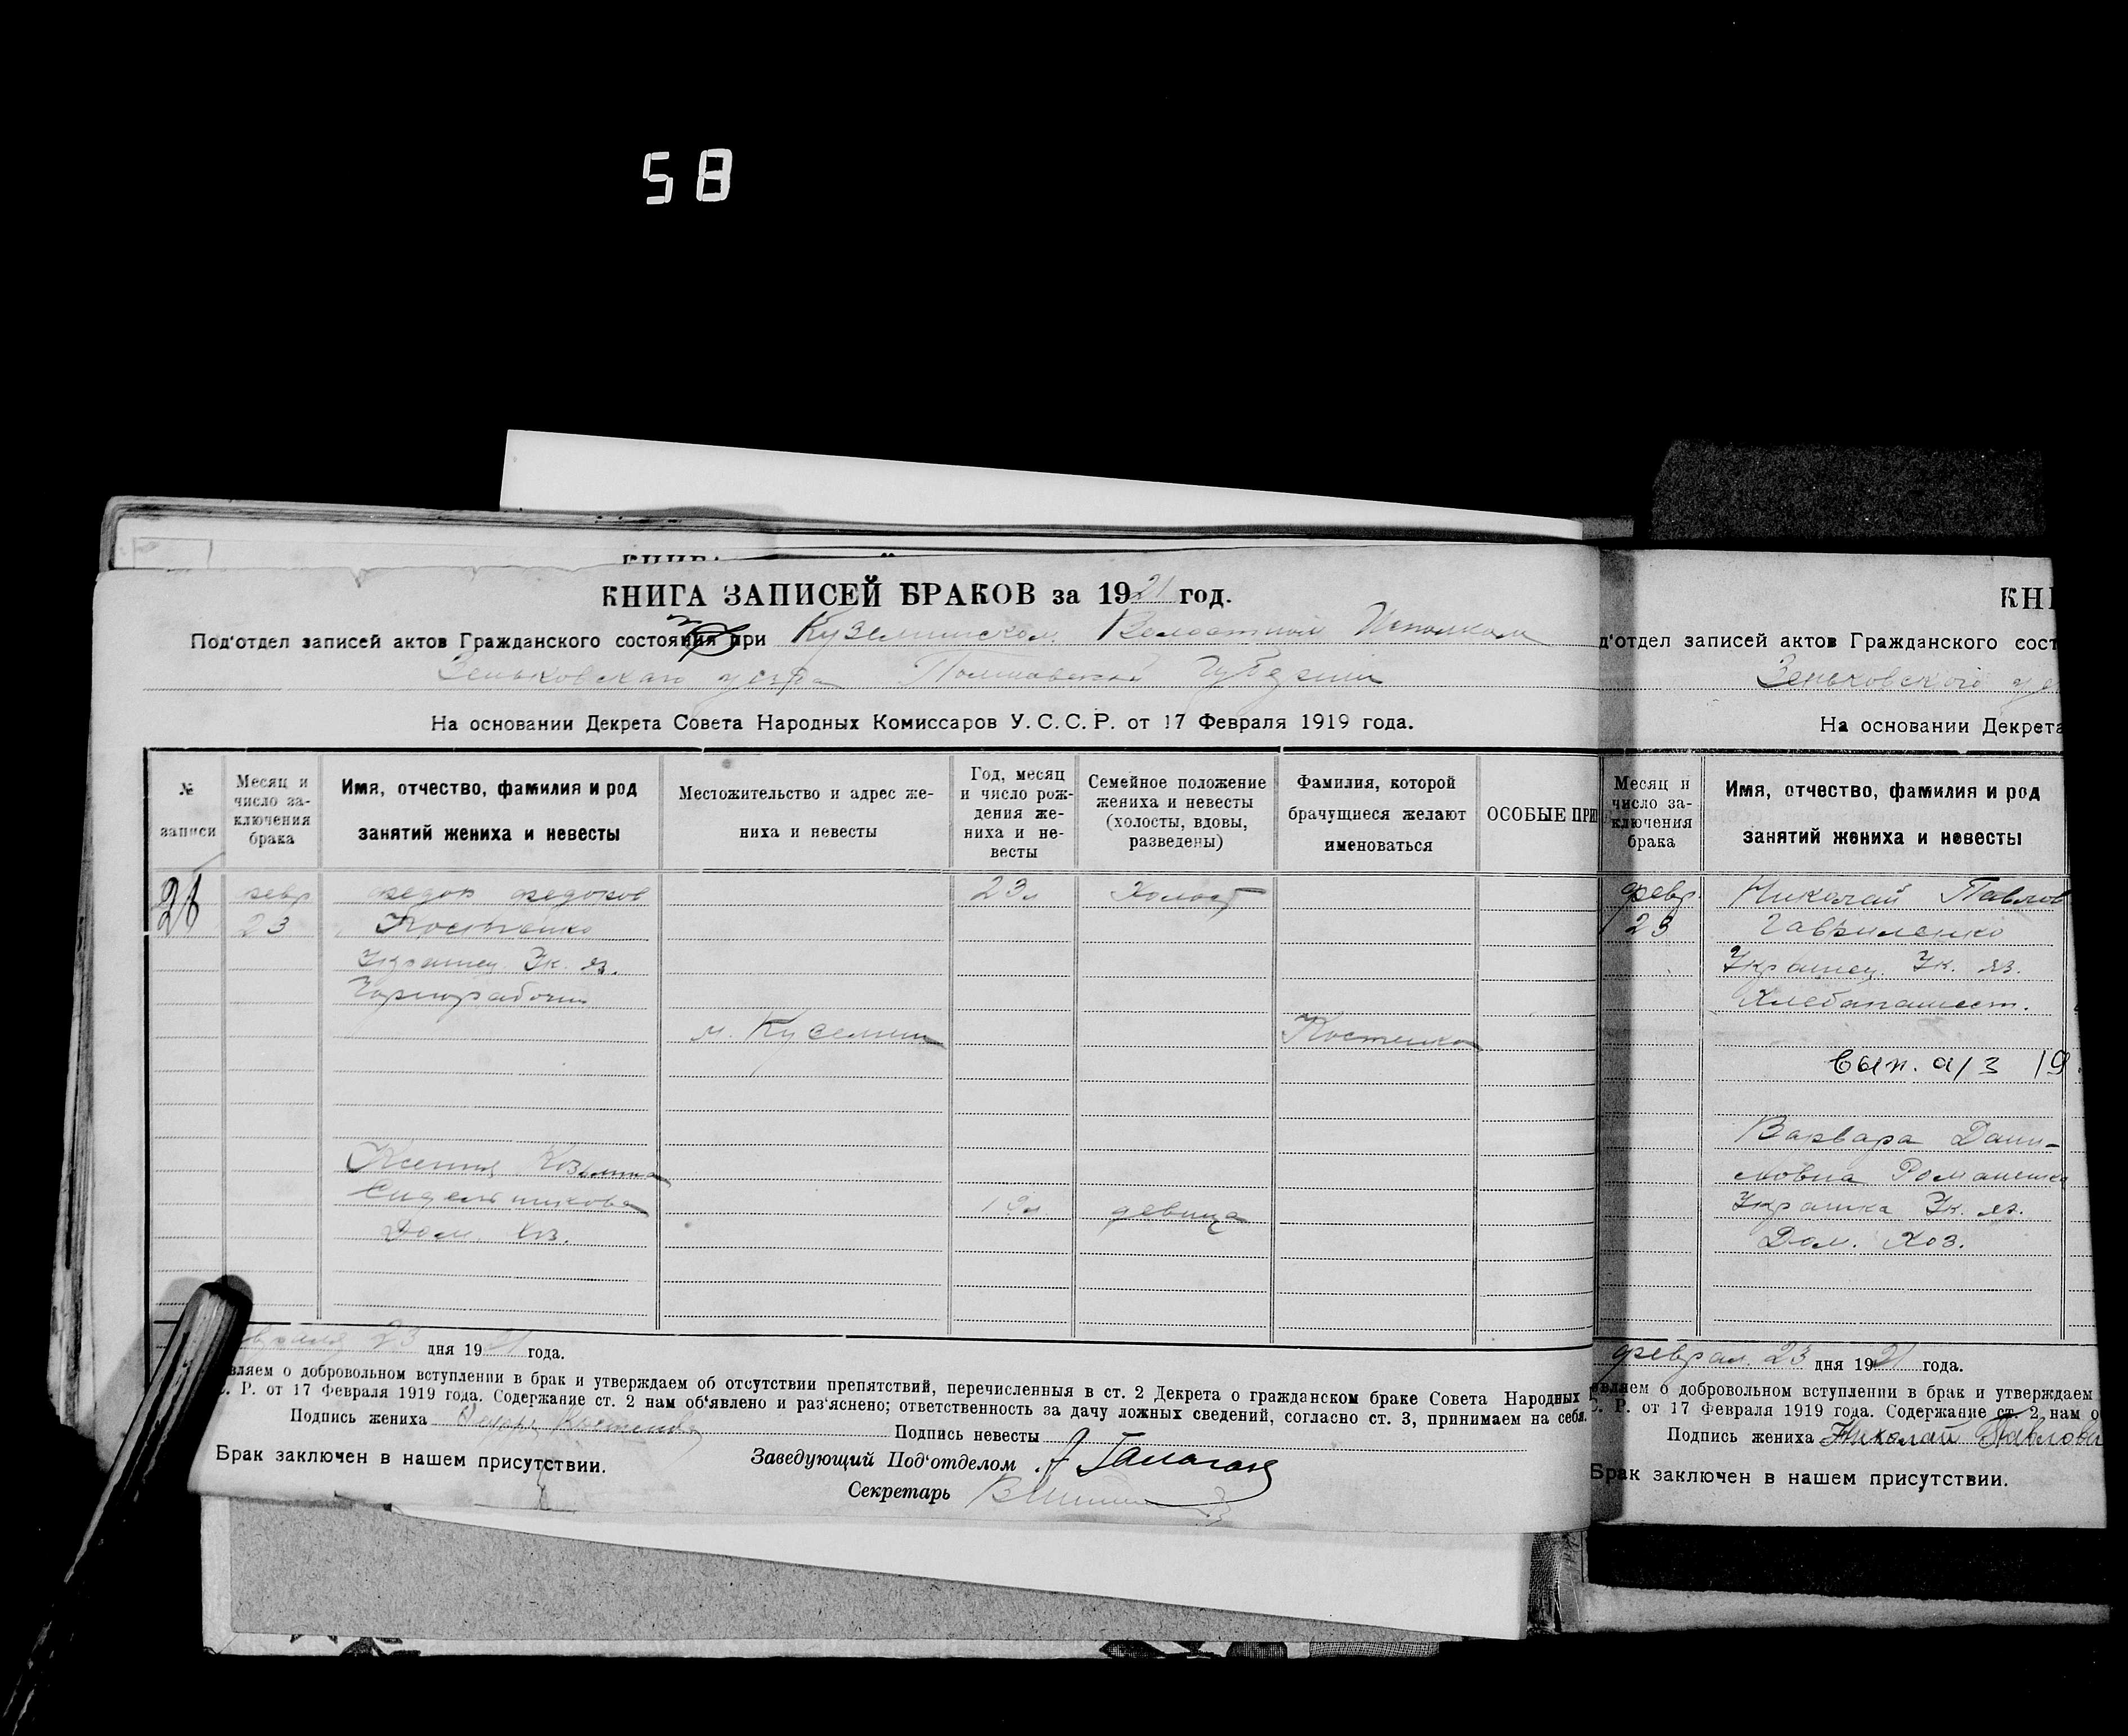 58
КНИГА ЗАПИСЕЙ БРАКОВ за 1921 год.
Под'отдел записей актов Гражданского состояния при Куземинском Волостном Исполком
Зеньковского уезда Полтавской Губернии
На основании Декрета Совета Народных Комиссаров У.С.С.Р. от 17 Февраля 1919 года.
№ записи
Месяц и число за-
ключения
брака
Имя, отчество, фамилия и род
занятий жениха и невесты
Местожительство и адрес же-
ниха и невесты
Год, месяц
и число рож-
дения же-
ниха и не-
весты
Семейное положение
жениха и невесты
(холосты, вдовы,
разведены)
Фамилия, которой
брачущиеся желают
именоваться
ОСОБЫЕ ПРИ
февр
23
Федор Федоров
Костенко
Украинец Ук. яз.
Чернорабочий
м. Куземин
23л
Холост
Костенко
Ксения
Сидельникова
Дом. хоз.
19л
девица
23 дня 1921 года.
вляем о добровольном вступлении в брак и утверждаем об отсутствии препятствий, перечисленныя в ст. 2 Декрета о гражданском браке Совета Народных
С. Р. от 17 Февраля 1919 года. Содержание ст. 2 нам об'явлено и раз'яснено; ответственность за дачу ложных сведений, согласно ст. 3, принимаем на себя.
Подпись жениха Костенко
Подпись невесты
Брак заключен в нашем присутствии.
Заведующий Под'отделом
Секретарь
КНИ
д'отдел записей актов Гражданского сост
Зеньковского у
На основании Декрета
Месяц и
число за-
ключения
брака
Имя, отчество, фамилия и род
занятий жениха и невесты
февр.
23
Николай Павлов
Гавриленко
Украинец Ук. яз.
Хлебопашест.
Вып. а/з 19
Варвара Дани-
ловна Романенко
Украинка Ук. яз.
Дом. Хоз.
феврал. 23 дня 1921 года.
вляем о добровольном вступлении в брак и утверждаем
С. Р. от 17 Февраля 1919 года. Содержание ст. 2 нам о
Подпись жениха Николай Павлови
Брак заключен в нашем присутствии.